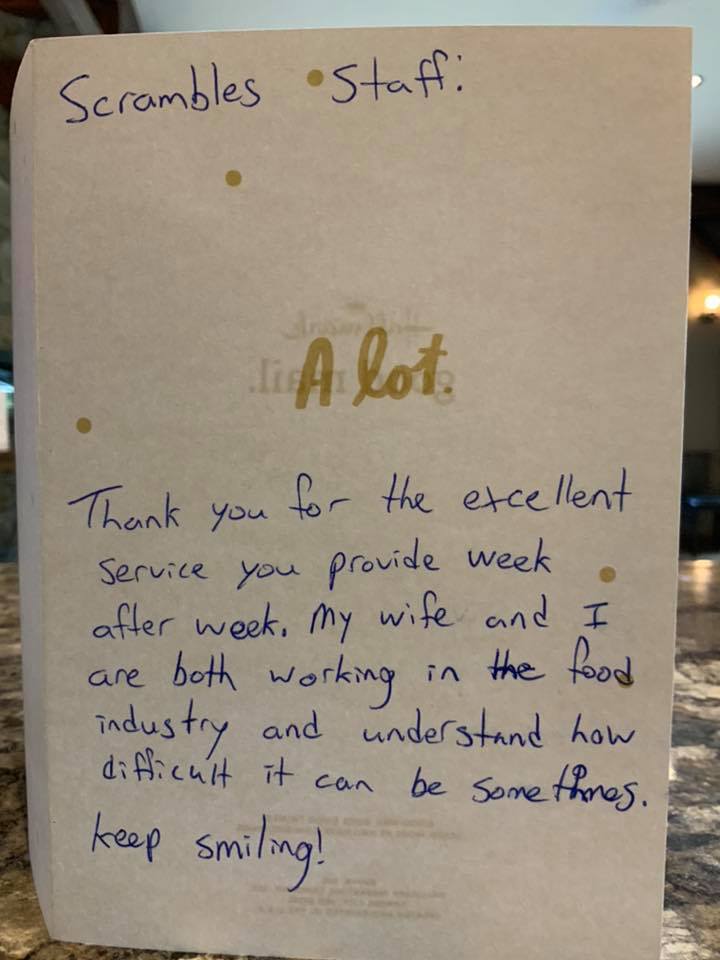 Scrambles Staff:
Hallmark
A lot.
good mail.
Thank you for the excellent
service you provide week
after week. My wife and I
are both working in the food
industry and understand how
difficult it can be sometimes.
Keep smiling!